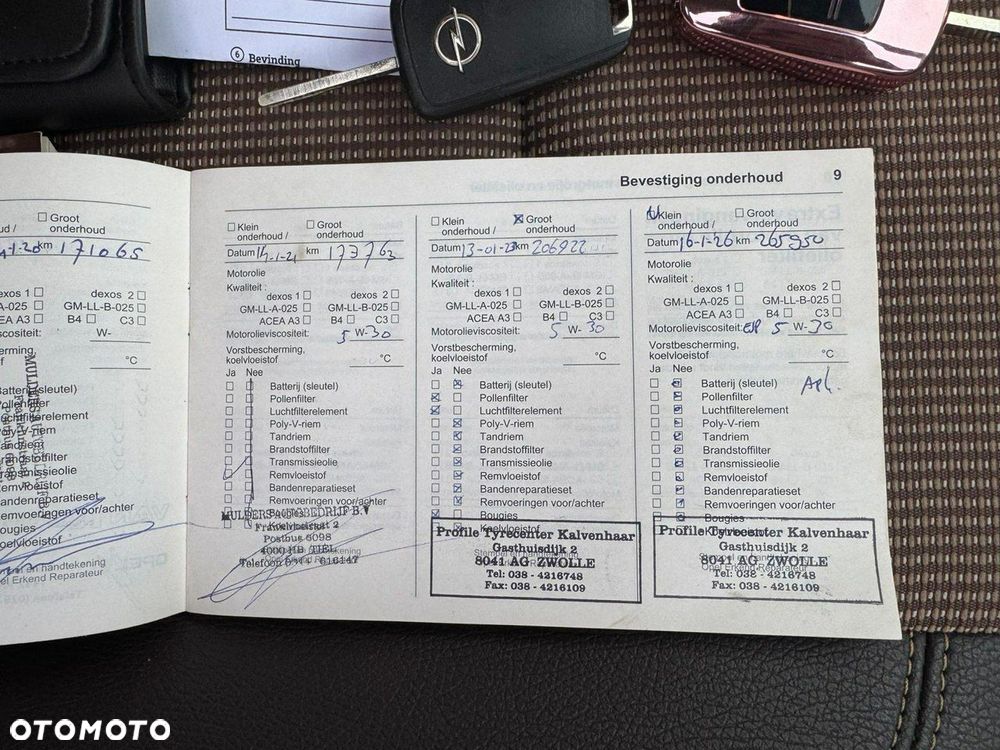 6 Bevinding
Bevestiging onderhoud 9
Groot
onderhoud / onderhoud
km 171065
dexos 1 dexos 2
LL-A-025 GM-LL-B-025
ACEA A3 B4 C3
viscositeit: W-
°C
Poly-V-riem
Transmissieolie
Remvloeistof
Bandenreparatieset
Remvoeringen voor/achter
Bougies
Koelvloeistof
en handtekening
Opel Erkend Reparateur
Klein Groot
onderhoud / onderhoud
Datum 14-1-21 km 173763
Motorolie
Kwaliteit :
dexos 1 dexos 2
GM-LL-A-025 GM-LL-B-025
ACEA A3 B4 C3
Motorolieviscositeit: 5 W-30
Vorstbescherming,
koelvloeistof °C
Ja Nee
Batterij (sleutel)
Pollenfilter
Luchtfilterelement
Poly-V-riem
Tandriem
Brandstoffilter
Transmissieolie
Remvloeistof
Bandenreparatieset
Remvoeringen voor/achter
MULDERS AUTOBEDRIJF B.V
Koelvloeistof
Postbus 6098
4000 HB TIEL
Telefoon
Klein Groot
onderhoud / onderhoud
Datum 13-01-23 km 206922
Motorolie
Kwaliteit :
dexos 1 dexos 2
GM-LL-A-025 GM-LL-B-025
ACEA A3 B4 C3
Motorolieviscositeit: 5 W-30
Vorstbescherming,
koelvloeistof °C
Ja Nee
Batterij (sleutel)
Pollenfilter
Luchtfilterelement
Poly-V-riem
Tandriem
Brandstoffilter
Transmissieolie
Remvloeistof
Bandenreparatieset
Remvoeringen voor/achter
Bougies
Koelvloeistof
Profile Tyrecenter Kalvenhaar
Gasthuisdijk 2
8041 AG ZWOLLE
Tel: 038 - 4216748
Fax: 038 - 4216109
Klein Groot
onderhoud / onderhoud
Datum 16-1-26 km 265950
Motorolie
Kwaliteit :
dexos 1 dexos 2
GM-LL-A-025 GM-LL-B-025
ACEA A3 B4 C3
Motorolieviscositeit: 5 W-30
Vorstbescherming,
koelvloeistof °C
Ja Nee
Batterij (sleutel)
Pollenfilter
Luchtfilterelement
Poly-V-riem
Tandriem
Brandstoffilter
Transmissieolie
Remvloeistof
Bandenreparatieset
Remvoeringen voor/achter
Bougies
Koelvloeistof
Profile Tyrecenter Kalvenhaar
Gasthuisdijk 2
8041 AG ZWOLLE
Opel Erkend Reparateur
Tel: 038 - 4216748
Fax: 038 - 4216109
OTOMOTO